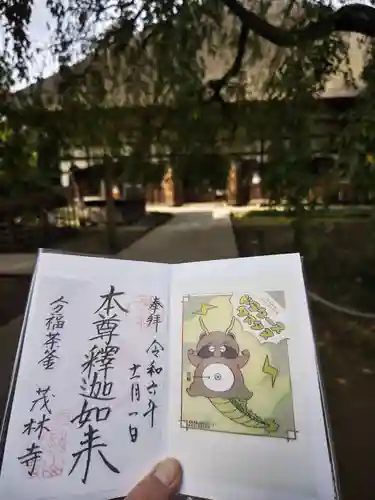 奉拝
令和六年
十一月一日
本尊釋迦如来
分福茶釜
茂林寺